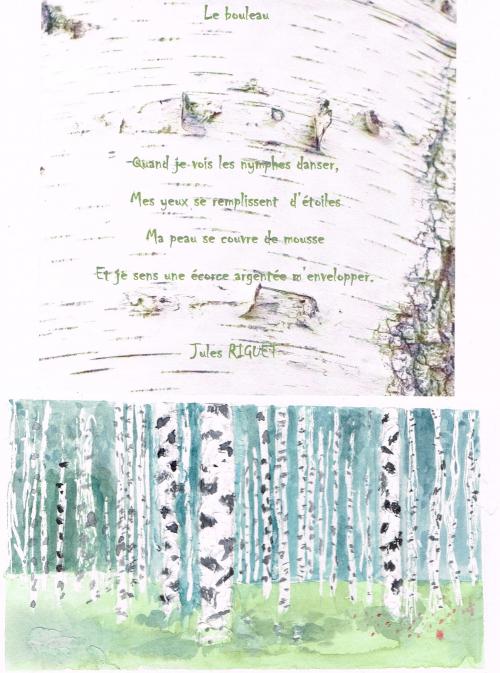 Le bouleau
Quand je vois les nymphes danser,
Mes yeux se remplissent d'étoiles
Ma peau se couvre de mousse
Et je sens une écorce argentée m'envelopper.
Jules RIGUET